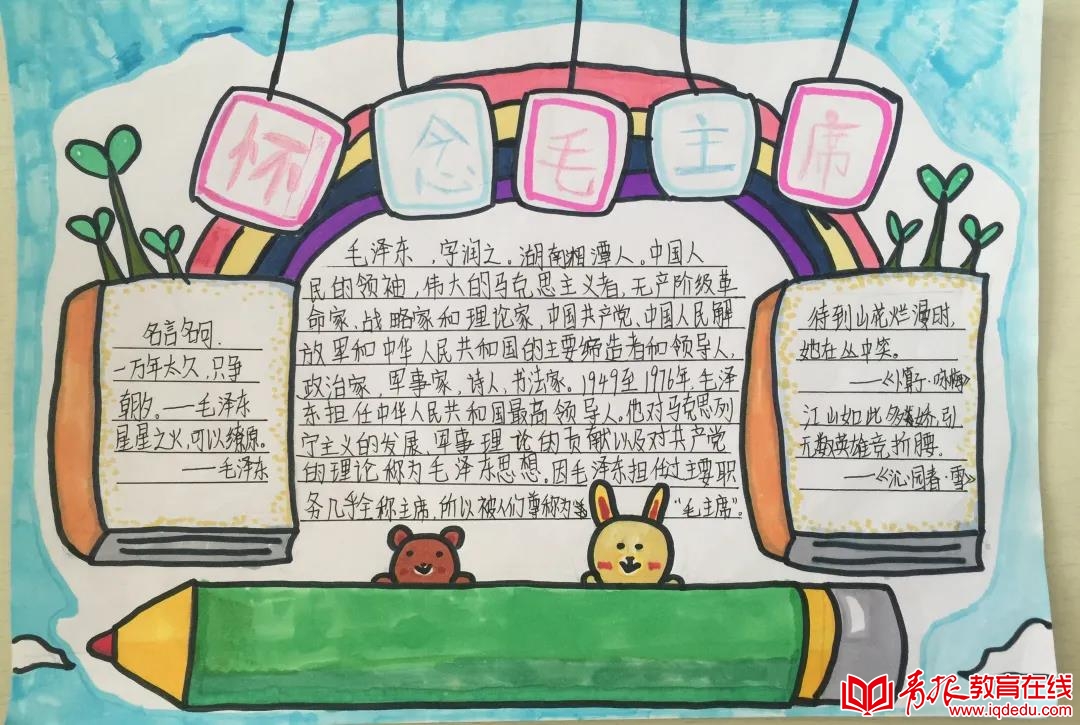 怀念毛主席
毛泽东,字润之。湖南湘潭人。中国人
民的领袖,伟大的马克思主义者,无产阶级革
命家、战略家和理论家,中国共产党、中国人民解
放军和中华人民共和国的主要缔造者和领导人,
政治家,军事家,诗人,书法家。1949至1976年,毛泽
东担任中华人民共和国最高领导人。他对马克思列
宁主义的发展、军事理论的贡献以及对共产党
的理论称为毛泽东思想。因毛泽东担任过主要职
务几乎全称主席,所以被人们尊称为“毛主席”。
名言名句.
一万年太久,只争
朝夕。——毛泽东
星星之火,可以燎原。
——毛泽东
待到山花烂漫时,
她在丛中笑。
——《卜算子·咏梅》
江山如此多娇,引
无数英雄竞折腰.
——《沁园春·雪》
青报教育在线
www.iqdedu.com